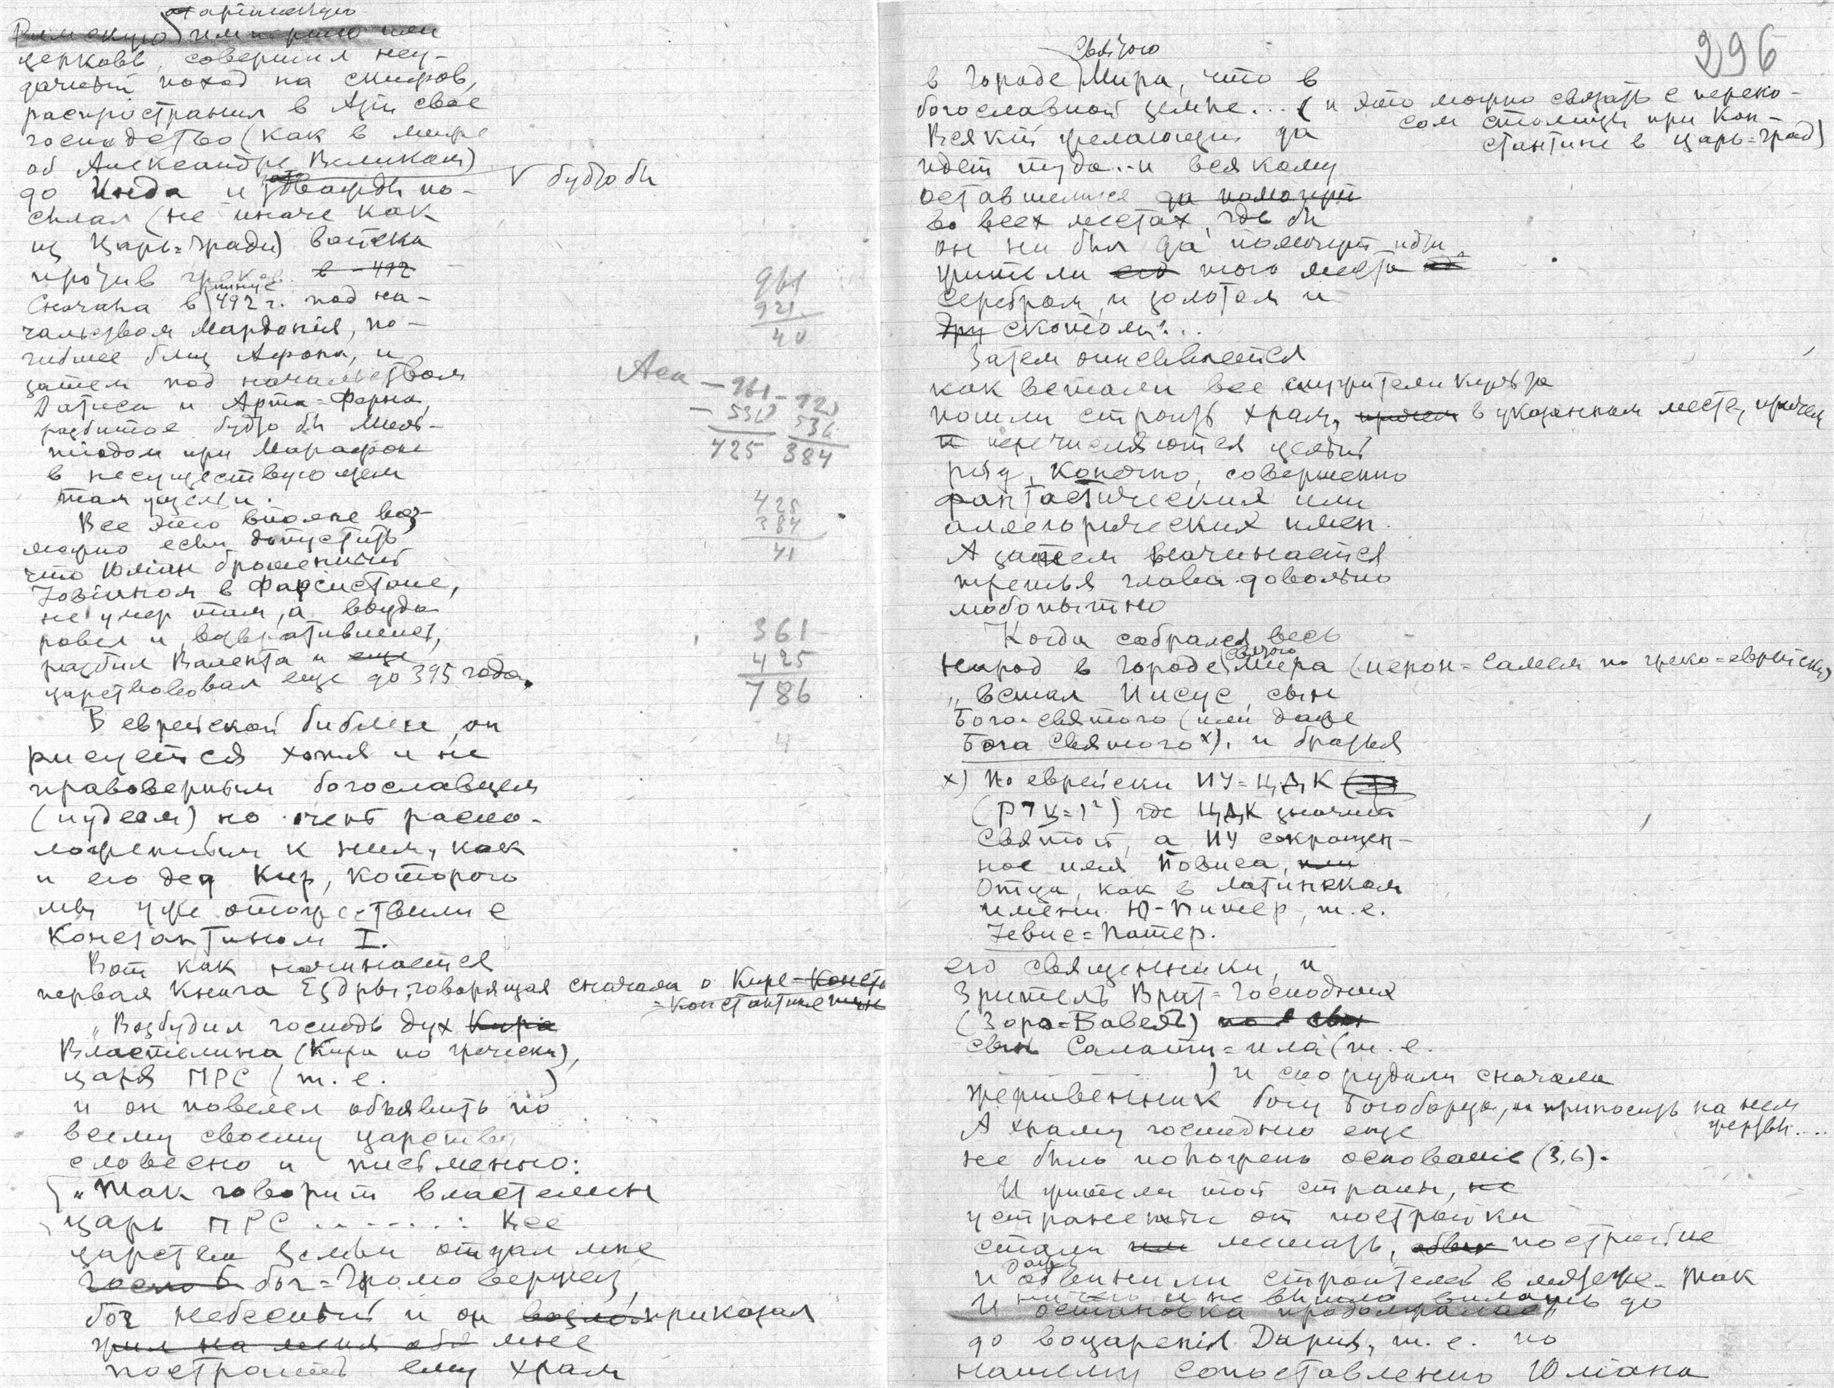 арианскую
Римскую империю или
церковь, совершил неу-
дачный поход на скифов,
распространил в Азии свое
господство (как в мифе
об Александре Великом)
до Инда и дважды по- V будто бы
сылал (не иначе как
из Царь=Града) войска
против греков в - 492
Сначала в минус 492 г. под на-
чальством Мардонія, по-
гибшее близ Афона, и
затем под начальством
Датиса и Арта=Ферна
разбитое будто бы Миль-
тиадом при Марафоне
в несуществующем
там ущельи.
Все это вполне воз-
можно если допустить
что Юліан брошенный
Іовіаном в Фарсистане,
не умер там, а выздо
ровел и, возвратившись,
разбил Валента и еще
царствовал еще до 395 года.
В еврейской библии он
рисуется хотя и не
правоверным богославцем
(иудеем) но очень распо-
ложенным к ним, как
и его дед Кир, которого
мы уже отождествили с
Константином I.
Вот как начинается
первая Книга Ездры, говорящая сначала о Кире-Конста
=Константине
"Возбудил господь дух Кира
Властелина (Кира по гречески),
царя ПРС (т. е. )
и он повелел объявить по
всему своему царству
словесно и письменно:
"Так говорит властелин
царь ПРС ....... Все
царства земли отдал мне
господь бог=Громовержец,
бог небесный и он приказал
мне
построить ему храм
961
921
40
Аса – 961 – 920
– 536 536
425 384
425
384
41
361
425
786
4
296
в городе Святого Мира, что в
богославной земле... (и это можно связать с перено-
сом столицы при Кон-
стантине в Царь=Град)
Всякий желающий да
идет туда... и всякому
оставшемуся да помогут
во всех местах, где бы
он ни был да помогут
жители его того места
серебром, и золотом и
скотом"...
Затем описывается
как встали все служители
пошли строить храм, в указанном месте, причем
и перечисляются целый
ряд, конечно, совершенно
фантастических или
аллегорических имен.
А затем начинается
третья глава довольно
любопытно
Когда собрался весь
народ в городе Святого Мира (иерон=Салем по греко=еврейски)
"Встал Иисус, сын
Бого-святого (или даже
Бога святого х). и братья
х) По еврейски ИУ=ЦДК
где ЦДК значит
Святой, а ИУ сокращен-
ное имя Иовиса, или
Отца, как в латинском
имени Ю-Питер, т. е.
Іевис=Патер.
его священники, и
Зритель Врат=Господних
(Зора=Вавель)
сын Салати=ила (т. е.
) и соорудили сначала
жертвенник богу Богоборца, и приносить на нем
жертвы....
А храму господнию еще
не было положено основание (3,6).
И жители той страны, не
устраненные от постройки
стали им мешать, постройке
и даже обвинили строителей в мятеже. Так
И остановка продолжалась
до воцарения Дария, т. е. по
нашему сопоставлению Юліана